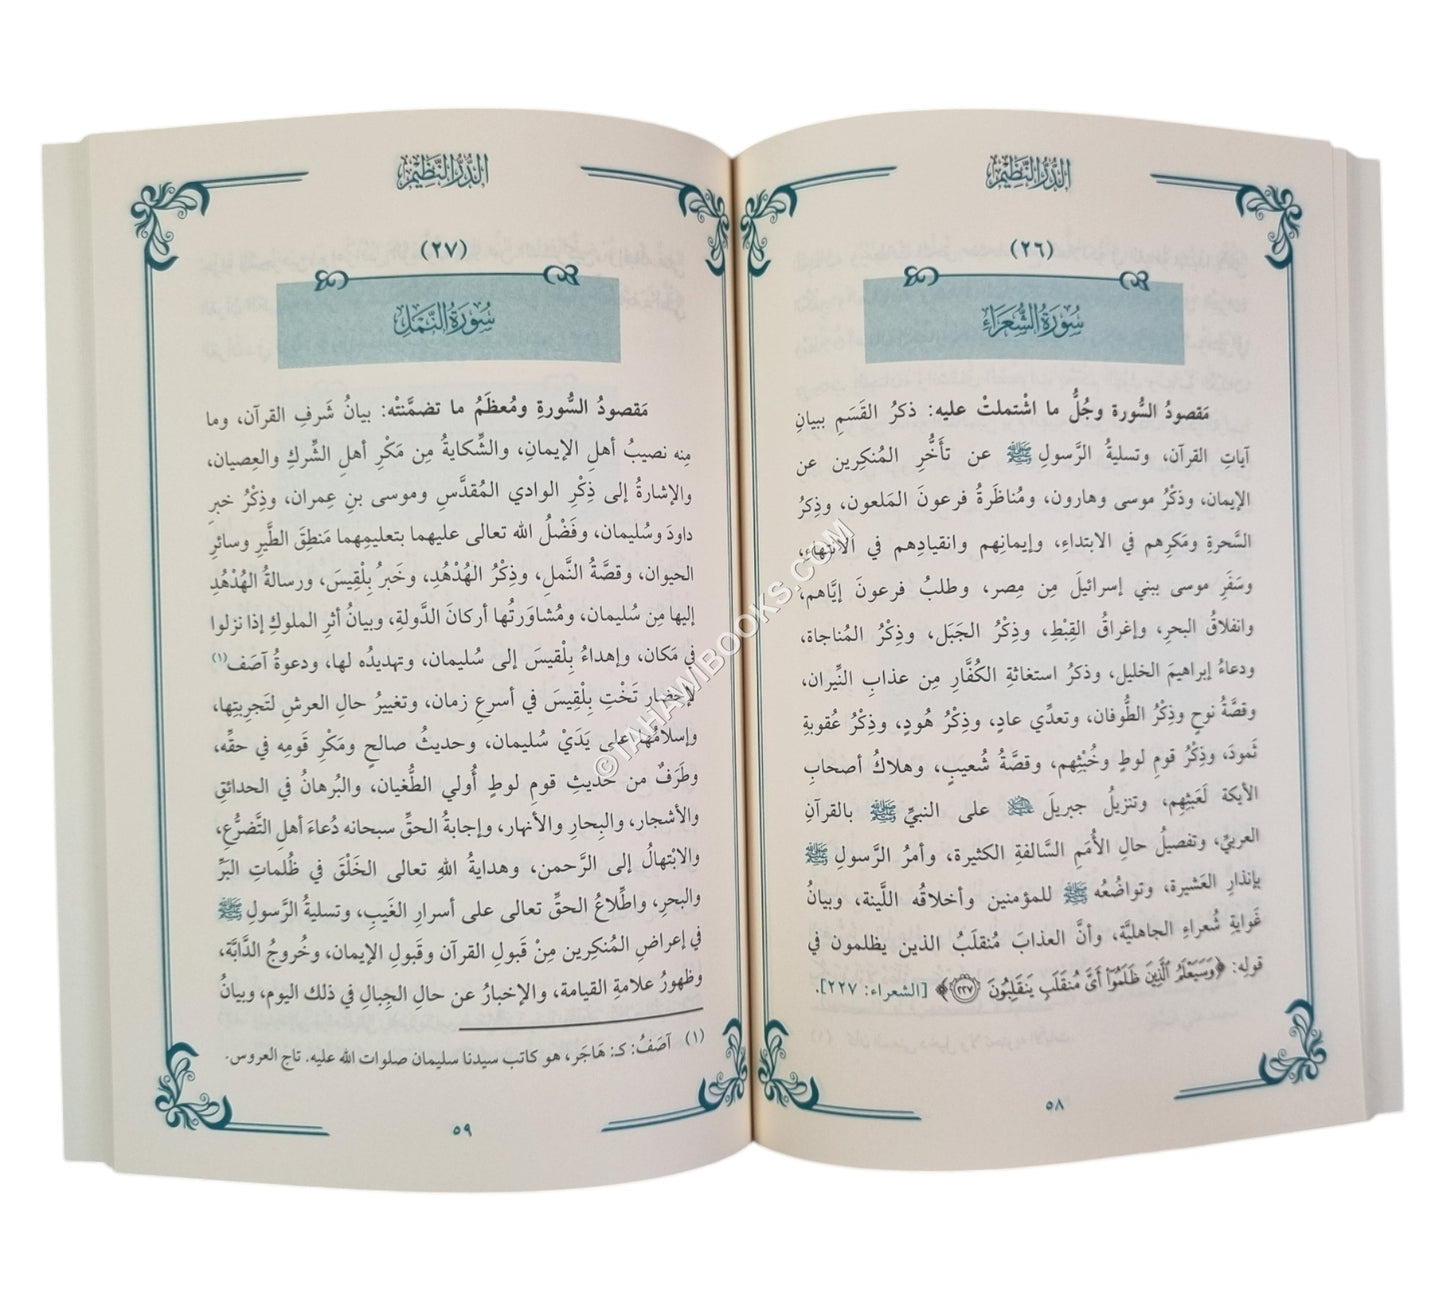 الدُّرُّ النَّظِيْم
(٢٦)
سُورَةُ الشُّعَرَاءِ
مَقصودُ السُّورة وجُلُّ ما اشْتملتْ عليه: ذكرُ القَسَمِ ببيانِ
آياتِ القرآن، وتسليةُ الرَّسولِ ﷺ عن تأَخُّرِ المُنكِرين عن
الإيمان، وذكْرُ موسى وهارون، ومُناظَرةُ فرعونَ المَلعون، وذِكرُ
السَّحرةِ ومَكرِهم في الابتداءِ، وإيمانِهم وانقيادِهم في الانتهاءِ،
وسَفَرِ موسى ببني إسرائيلَ مِن مِصر، وطلبُ فرعونَ إيَّاهم،
وانفلاقُ البحرِ، وإغراقُ القِبْطِ، وذِكْرُ الجَبَل، وذِكْرُ المُناجاة،
ودعاءُ إبراهيمَ الخليل، وذكرُ استغاثةِ الكُفَّارِ مِن عذابِ النِّيران،
وقصَّةُ نوحٍ وذِكْرُ الطُّوفان، وتعدِّي عادٍ، وذِكْرُ هُودٍ، وذِكْرُ عُقوبةِ
ثَمودَ، وذِكْرُ قومِ لوطٍ وخُبْثِهم، وقصَّةُ شُعيبٍ، وهلاكُ أصحابِ
الأيكة لَعَبَثِهِم، وتنزيلُ جبريلَ ﷺ على النبيِّ ﷺ بالقرآنِ
العربيِّ، وتفصيلُ حالِ الأُمَمِ السَّالفةِ الكثيرة، وأمرُ الرَّسولِ ﷺ
بإنذارِ العَشيرة، وتواضُعُه ﷺ للمؤمنين وأخلاقُه اللَّينة، وبيانُ
غَوايةِ شُعراءِ الجاهليَّة، وأنَّ العذابَ مُنقلَبُ الذين يظلمون في
قولِه: ﴿وَسَيَعْلَمُ ٱلَّذِينَ ظَلَمُوٓا۟ أَىَّ مُنقَلَبٍ يَنقَلِبُونَ ٢٢٧﴾ [الشعراء: ٢٢٧].
٥٨
الدُّرُّ النَّظِيْم
(٢٧)
سُورَةُ النَّمْلِ
مَقصودُ السُّورةِ ومُعظَمُ ما تضمَّنتْه: بيانُ شَرفِ القرآن، وما
مِنه نصيبُ أهلِ الإيمانِ، والشِّكايةُ مِن مَكْرِ أهلِ الشِّركِ والعِصيان،
والإشارةُ إلى ذِكْرِ الوادي المُقدَّسِ وموسى بنِ عِمران، وذِكْرُ خبرِ
داودَ وسُليمان، وفَضْلُ الله تعالى عليهما بتعليمِهما مَنطِقَ الطَّيرِ وسائرِ
الحيوان، وقصَّةُ النَّملِ، وذِكْرُ الهُدْهُدِ، وخَبرُ بِلْقِيسَ، ورسالةُ الهُدْهُدِ
إليها مِن سُليمان، ومُشاوَرتُها أركانَ الدَّولةِ، وبيانُ أثرِ الملوكِ إذا نزلوا
في مَكان، وإهداءُ بِلْقيسَ إلى سُليمان، وتهديدُه لها، ودعوةُ آصَف(١)
لإحضارِ تَخْتِ بِلْقِيسَ في أسرعِ زمان، وتغييرُ حالِ العرشِ لتَجرِيتِها،
وإسلامُها على يَدَيْ سُليمان، وحديثُ صالحٍ ومَكْرِ قَومِه في حقِّه،
وطَرَفٌ من حديثِ قومِ لوطٍ أُولي الطُّغيان، والبُرهانُ في الحدائقِ
والأشجار، والبِحارِ والأنهار، وإجابةُ الحقِّ سبحانه دُعاءَ أهلِ التَّضرُّعِ،
والابْتهالُ إلى الرَّحمن، وهدايةُ اللهِ تعالى الخَلْقَ في ظُلماتِ البَرِّ
والبحرِ، واطِّلاعُ الحقِّ تعالى على أسرارِ الغَيبِ، وتسليةُ الرَّسولِ ﷺ
في إعراضِ المُنكِرين مِنْ قَبولِ القرآن وقَبولِ الإيمان، وخُروجُ الدَّابَّة،
وظهورُ علامةِ القيامة، والإخبارُ عن حالِ الجِبالِ في ذلك اليوم، وبيانُ
(١) آصَفُ: كـ: هَاجَر، هو كاتب سيدنا سليمان صلوات الله عليه. تاج العروس.
٥٩
©TAHAWIBOOKS.COM